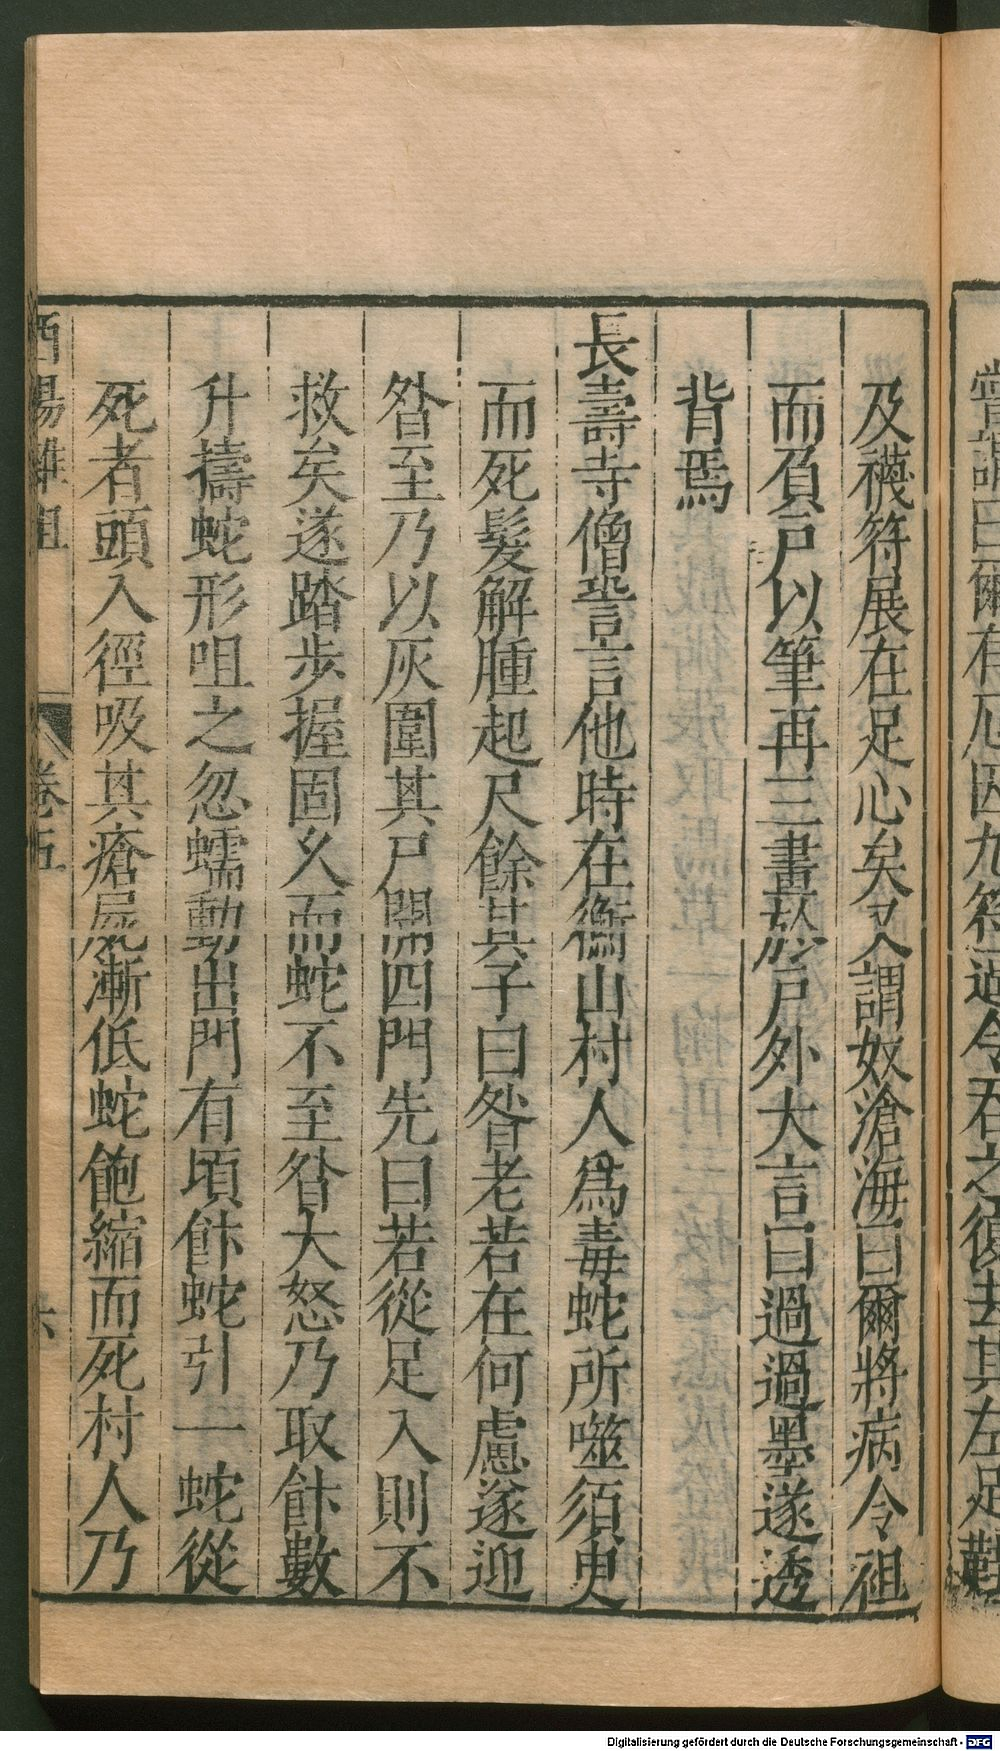 嘗謂曰爾有厄因丸符逼令吞之復去其左足鞋
及襪符展在足心矣又謂奴滄海曰爾將病令袒
而負戸以筆再三畫於戸外大言曰過過墨遂透
背焉
長壽寺僧䛑言他時在衡山村人爲毒蛇所噬須臾
而死髮解腫起尺餘其子曰昝老若在何慮遂迎
昝至乃以灰圍其尸開四門先曰若從足入則不
救矣遂踏步握固久而蛇不至昝大怒乃取飰數
升擣蛇形咀之忽蠕動出門有頃飰蛇引一蛇從
死者頭入徑吸其瘡屍漸低蛇皰縮而死村人乃
酉陽雜俎
卷五
六
Digitalisierung gefördert durch die Deutsche Forschungsgemeinschaft - DFG